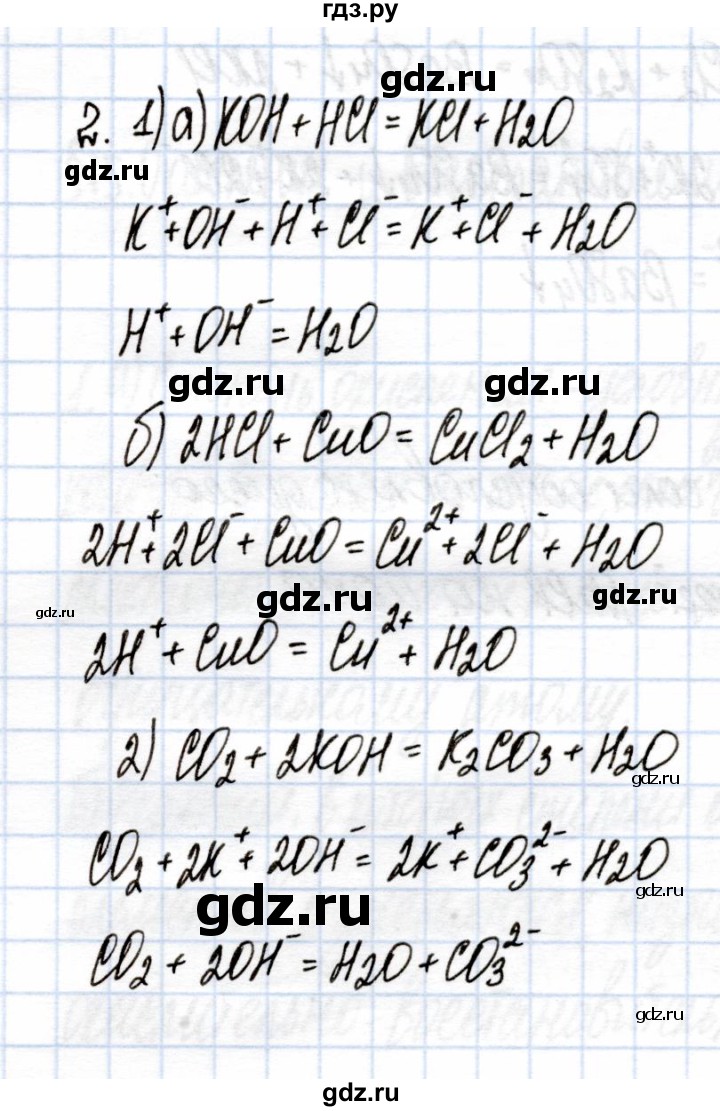 гдз.ру
gdz.ru
2. 1) а) KOH + HCl = KCl + H2O
gdz.ru
K⁺ + OH⁻ + H⁺ + Cl⁻ = K⁺ + Cl⁻ + H2O
H⁺ + OH⁻ = H2O
gdz.ru gdz.ru
б) 2HCl + CuO = CuCl2 + H2O
2H⁺ + 2Cl⁻ + CuO = Cu²⁺ + 2Cl⁻ + H2O
gdz.ru gdz.ru
2H⁺ + CuO = Cu²⁺ + H2O
2) CO2 + 2KOH = K2CO3 + H2O
gdz.ru
CO2 + 2K⁺ + 2OH⁻ = 2K⁺ + CO3²⁻ + H2O
gdz.ru gdz.ru
CO2 + 2OH⁻ = H2O + CO3²⁻
gdz.ru
gdz.ru